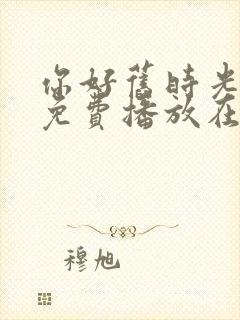 你好舊時光
免費播放在
穆旭